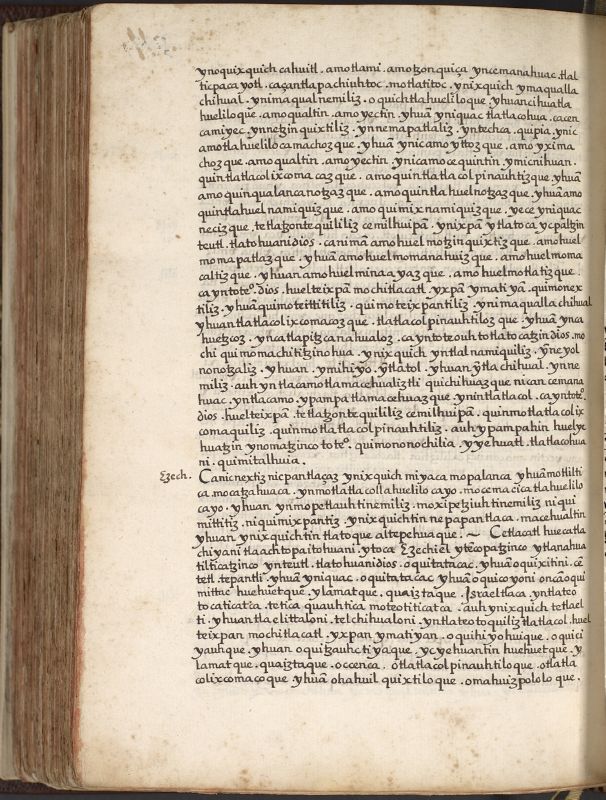 ynoquixquich cahuitl . amotlami . amotzon quiça yncemanahuac . tlal
ticpaca yotl . caçantlapachiuhtoc . motlatitoc . ynixquich ymaqualla
chihual . ynimaqual nemiliz . o quichtlahueliloque . yhuancihuatla
hueliloque . amoqualtin . amoyectin . yhuā yniquac tlatlacohua . cacen
camiyec . ynnetzin quixtiliz . ynnemapatlaliz . yntechca . quipia . ynic
amotlahuelilocamachozque . yhuā ynicamo yttozque . amo yxima
chozque . amoqualtin . amoyectin . ynicamocequintin . ymicnihuan .
quintlatlacolixcomacazque . amoquintlatlacolpinauhtizque . yhuā
amoquinqualancanotzazque . amoquintlahuelnotzazque . yhuā amo
quintlahuelnamiquizque . amo quimixnamiquizque . yece yniquac
necizque . tetlatzontequililiz cemilhuipā . ynixpā ytlatoca ycpaltzin
teutl . tlatohuani dios . canimā amohuelmotzinquixtizque . amohuel
momapatlazque . yhuā amohuelmomanahuizque . amohuelmoma
caltizque . yhuan amohuelminaayazque . amohuelmotlatizque .
cayntote͠o . dios . huelteixpā mochitlacatl . yxpā ymatiyā . quimonex
tiliz . yhuā quimoteittitiliz . quimoteixpantiliz . ynimaqualla chihual
yhuantlatlacolixcomacozque . tlatlacolpinauhtilozque . yhuā ynca
huetzcoz . yncatlapitzcanahualoz . cayntoteouhtotlatocatzin dios . mo
chi quimomachitiztzinohua . ynixquich yntlalnamiquiliz . ynneyol
nonotzaliz . yhuan . ymihiyo . yntlatol . yhuan yntlachihual . ynne
miliz . auh yntlacamotlamacehualiztli quichihuazque nican cemana
huac . yntlacamo . ypampatlamacehuazque ynintlatlacol . cayntote͠o
dios . huelteixpā . tetlatzontequililiz cemilhuipā . quinmotlatlacolix
comaquiliz . quinmotlatlacolpinauhtiliz . auh ypampahin huelye
huatzin ynomatzinco tote͠o . quimononochilia . yyehuatl . tlatlacohua
ni . quimitalhuia .
Ezech. Canicnextiz nicpantlaçaz ynixquich miyaca mopalanca yhuā motlilti
ca mocatzahuaca . ynmotlatlacolla huelilocayo . mocemacicatlahuelilo
cayo . yhuan ynmopetlauhtinemiliz . moxipetziuhtinemiliz niqui
mittitiz . niquimixpantiz . ynixquichtin nepapantlaca . macehualtin
yhuan ynixquichtin tlatoque altepehuaque . ~ Cetlacatl huecatla
chiyani tlaachtopaitohuani . ytoca Ezechiel ytecopatzinco ytlanahua
tilticatzinco ynteutl . tlatohuanidios . oquitatacac . yhuā oquixitini . cē
tetl . tepantli . yhuā yniquac . oquitatacac yhuā oquicoyoni oncā oqui
mittac huehuetque . ylamatque . quaiztaque . Israel tlaca . yntlateo
tocaticatca . tetica quauhtica moteotiticatca . auh ynixquich tetlael
ti . yhuantlaelittaloni . telchihualoni . yntlateotoquiliz tlatlacol . huel
teixpan mochitlacatl . yxpan ymatiyan . oquihiyohuique . oquici
yauhque . yhuan oquitzauhctiyaque . ycyehuantin huehuetque . y
lamatque . quaiztaque . occenca . otlatlacolpinauhtiloque . otlatla
colixcomacoque yhuā ohahuilquixtiloque . omahuizpololoque .